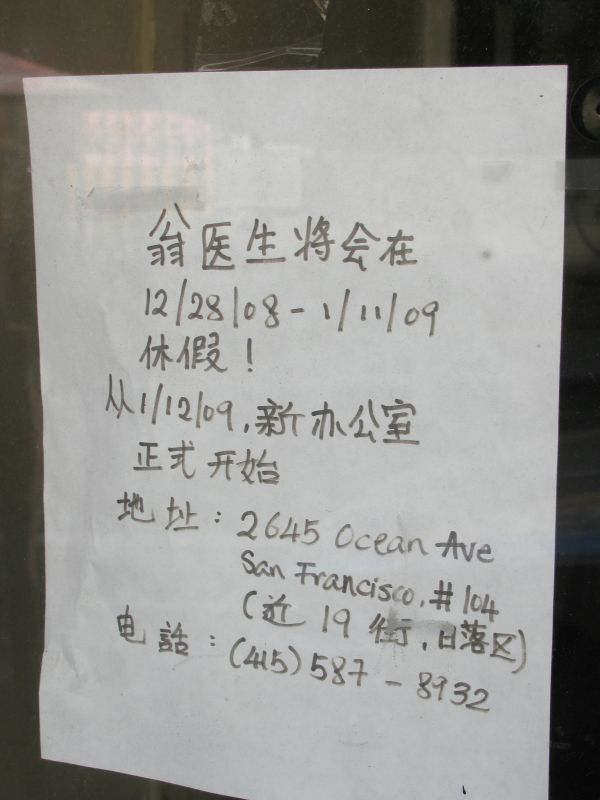 翁医生将会在
12/28/08 - 1/11/09
休假!
从1/12/09, 新办公室
正式开始
地址: 2645 Ocean Ave
San Francisco, #104
(近 19 街, 日落区)
电話: (415) 587 - 8932